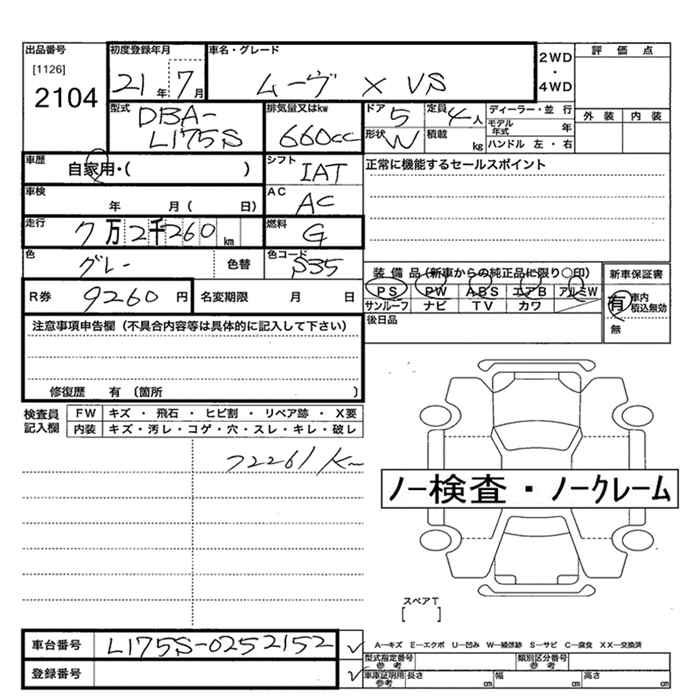 出品番号 初度登録年月 車名・グレード 2WD 評価点
[1126] ・
2104 21年 7月 ムーヴ X VS 4WD
型式 DBA-L175S 排気量又はkw 660cc ドア 5 定員 4人 ディーラー・並行 外装 内装
形状 W 積載 kg モデル年式 年
ハンドル 左・右
車歴 自家用・( ) シフト IAT 正常に機能するセールスポイント
車検 年 月 ( 日) AC AC
走行 7万2千260km 燃料 G
色 グレー 色替 色コード S35
装備品(新車からの純正品に限り○印) 新車保証書
R券 9260円 名変期限 月 日 PS PW ABS エアB アルミW 有 車内 積込無効
サンルーフ ナビ TV カワ 無
注意事項申告欄(不具合内容等は具体的に記入して下さい) 後日品
修復歴 有 (箇所 )
検査員 FW キズ・飛石・ヒビ割・リペア跡・X要
記入欄 内装 キズ・汚レ・コゲ・穴・スレ・キレ・破レ
72261K
ノー検査・ノークレーム
スペアT
[ ]
車台番号 L175S-0252152 A—キズ E—エクボ U—凹み W—補修跡 S—サビ C—腐食 XX—交換済
登録番号 型式指定番号 参考 類別区分番号 参考
車庫証明用 参考 長さ cm 幅 cm 高さ cm